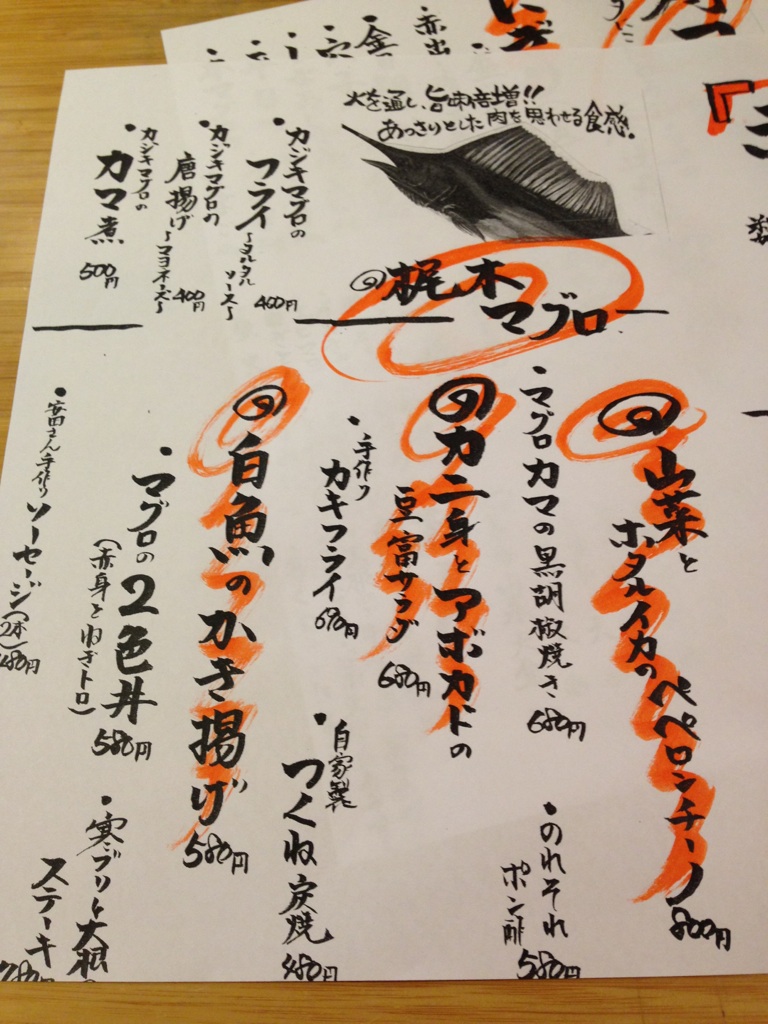 火を通し、旨味倍増!!
あっさりとした肉を思わせる食感。
◎梶木
マグロ
・カジキマグロの
フライ
〜タルタル
ソース〜
400円
・カジキマグロの
唐揚げ〜マヨネーズ〜
400円
・カジキマグロの
カマ煮
500円
◎山菜と
ホタルイカの
ペペロンチーノ
800円
・マグロカマの黒胡椒焼き
680円
・のれそれ
ポン酢
580円
◎カニ身とアボカドの
豆富サラダ
680円
・手作り
カキフライ
690円
・自家製
つくね炭焼
480円
◎白魚のかき揚げ
580円
・マグロの2色丼
(赤身とねぎトロ)
580円
・寒ブリと大根の
ステーキ
・安田さん手作りソーセージ(2本)
480円
赤出